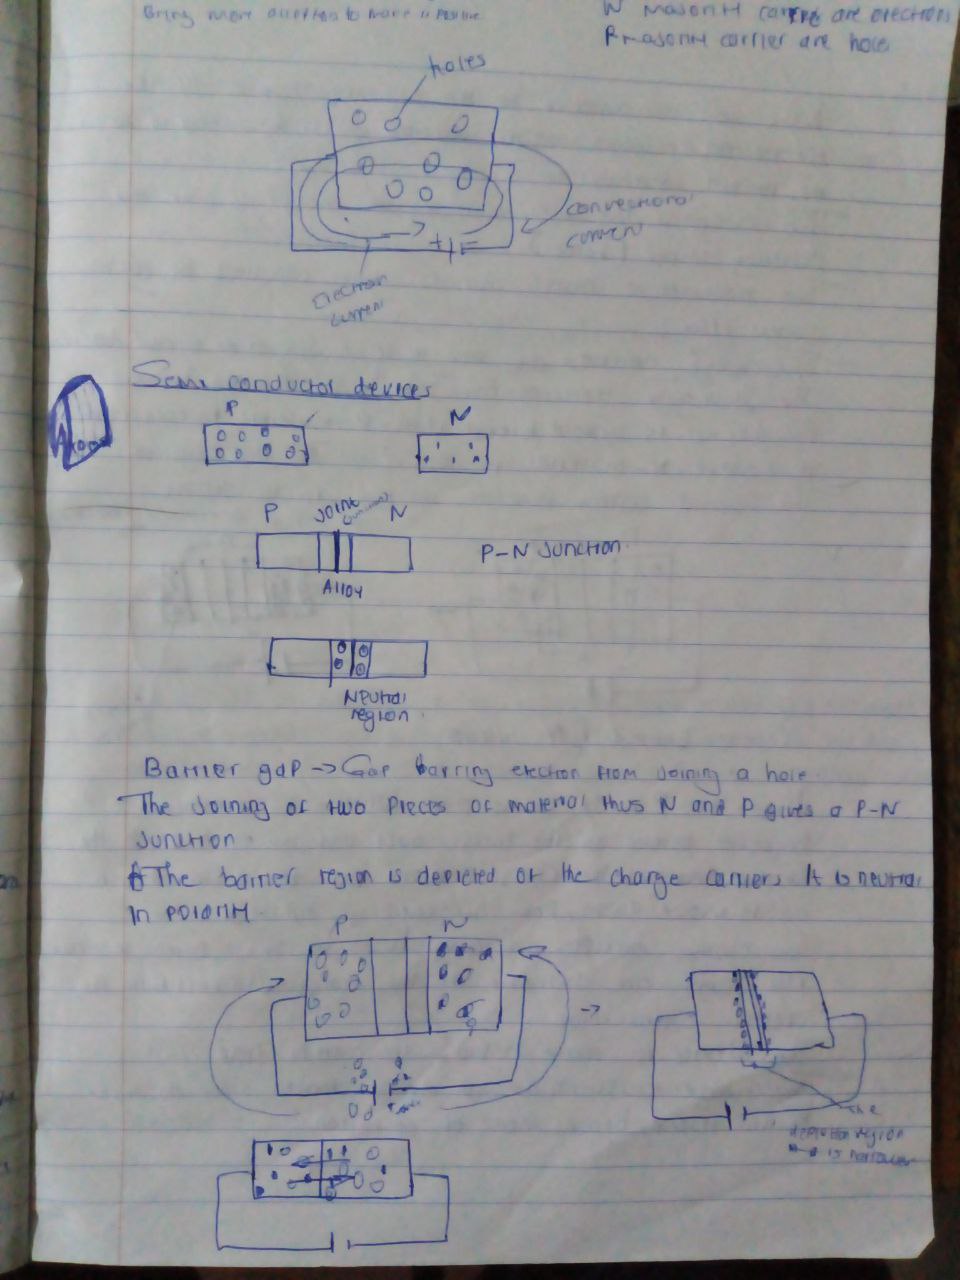 Bring more electron to make it positive
N majority carriers are electrons
P majority carrier are hole
holes
convectional
current
Electron
current
Semi conductor devices
P
N
P Joint (junction) N
P-N Junction.
Alloy
Neutral
region.
Barrier gap → Gap barring electron from joining a hole.
The Joining of two pieces of material thus N and P gives a P-N
Junction.
The barrier region is depleted of the charge carriers It is neutral
in polarity
P
N
+
the
depletion region
is narrower